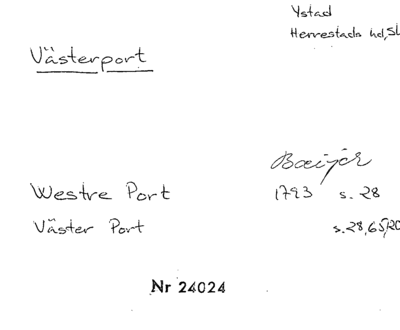 Ystad
Herrestads hd, Sk
Västerport
Baeijer
Westre Port 1793 s. 28
Väster Port s. 28, 65, 20
Nr 24024